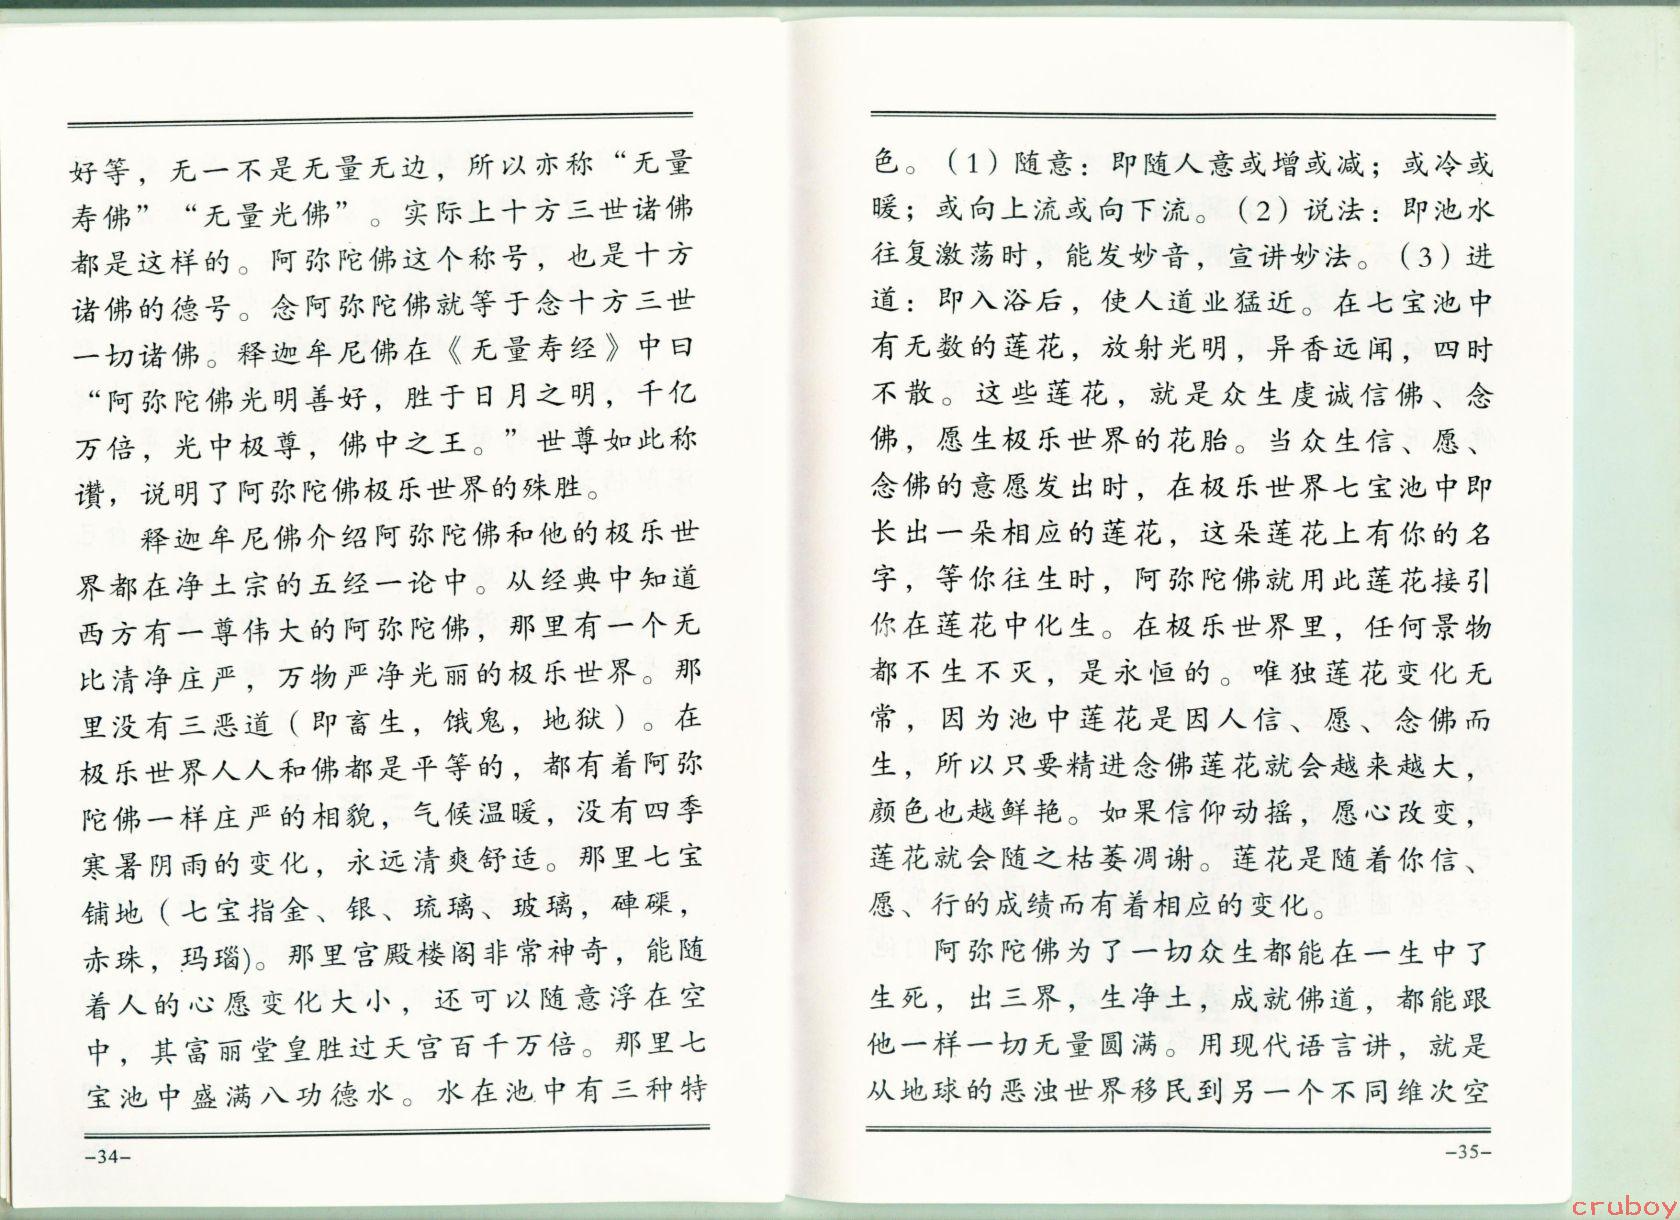 好等，无一不是无量无边，所以亦称“无量
寿佛”“无量光佛”。实际上十方三世诸佛
都是这样的。阿弥陀佛这个称号，也是十方
诸佛的德号。念阿弥陀佛就等于念十方三世
一切诸佛。释迦牟尼佛在《无量寿经》中曰
“阿弥陀佛光明善好，胜于日月之明，千亿
万倍，光中极尊，佛中之王。”世尊如此称
讚，说明了阿弥陀佛极乐世界的殊胜。
释迦牟尼佛介绍阿弥陀佛和他的极乐世
界都在净土宗的五经一论中。从经典中知道
西方有一尊伟大的阿弥陀佛，那里有一个无
比清净庄严，万物严净光丽的极乐世界。那
里没有三恶道（即畜生，饿鬼，地狱）。在
极乐世界人人和佛都是平等的，都有着阿弥
陀佛一样庄严的相貌，气候温暖，没有四季
寒暑阴雨的变化，永远清爽舒适。那里七宝
铺地（七宝指金、银、琉璃、玻璃，砗磲，
赤珠，玛瑙)。那里宫殿楼阁非常神奇，能随
着人的心愿变化大小，还可以随意浮在空
中，其富丽堂皇胜过天宫百千万倍。那里七
宝池中盛满八功德水。水在池中有三种特
-34-
色。（1）随意：即随人意或增或减；或冷或
暖；或向上流或向下流。（2）说法：即池水
往复激荡时，能发妙音，宣讲妙法。（3）进
道：即入浴后，使人道业猛近。在七宝池中
有无数的莲花，放射光明，异香远闻，四时
不散。这些莲花，就是众生虔诚信佛、念
佛，愿生极乐世界的花胎。当众生信、愿、
念佛的意愿发出时，在极乐世界七宝池中即
长出一朵相应的莲花，这朵莲花上有你的名
字，等你往生时，阿弥陀佛就用此莲花接引
你在莲花中化生。在极乐世界里，任何景物
都不生不灭，是永恒的。唯独莲花变化无
常，因为池中莲花是因人信、愿、念佛而
生，所以只要精进念佛莲花就会越来越大，
颜色也越鲜艳。如果信仰动摇，愿心改变，
莲花就会随之枯萎凋谢。莲花是随着你信、
愿、行的成绩而有着相应的变化。
阿弥陀佛为了一切众生都能在一生中了
生死，出三界，生净土，成就佛道，都能跟
他一样一切无量圆满。用现代语言讲，就是
从地球的恶浊世界移民到另一个不同维次空
-35-
cruboy